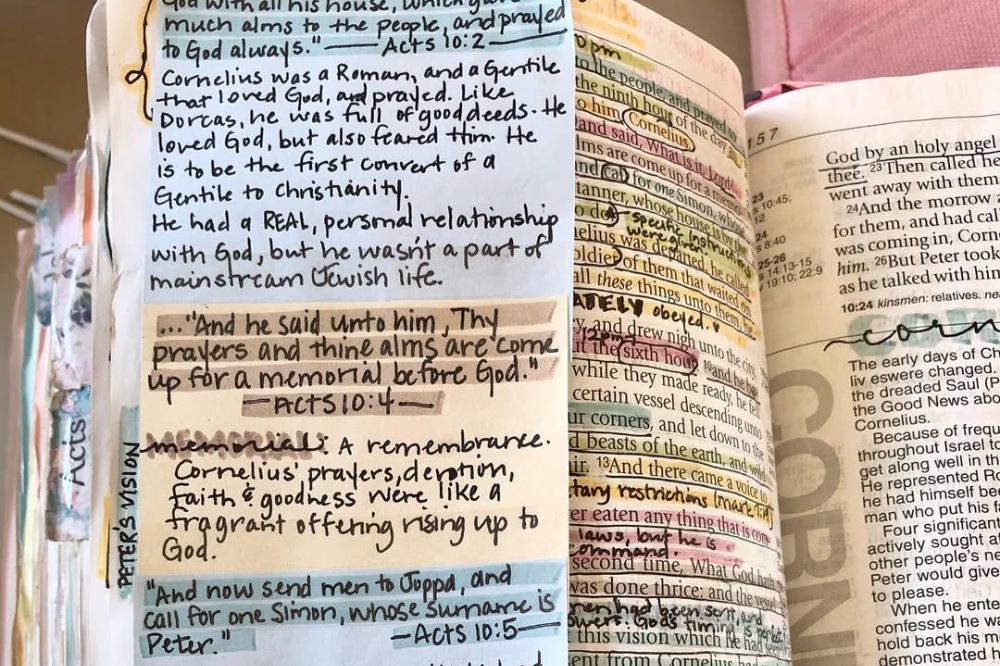 God with all his house, which gave
much alms to the people, and prayed
to God always." — Acts 10:2 —
Cornelius was a Roman, and a Gentile
that loved God, and prayed. Like
Dorcas, he was full of good deeds. He
loved God, but also feared Him. He
is to be the first convert of a
Gentile to Christianity.
He had a REAL, personal relationship
with God, but he wasn't a part of
mainstream Jewish life.
..."And he said unto him, Thy
prayers and thine alms are come
up for a memorial before God."
— ACTS 10:4 —
memorial: A remembrance.
Cornelius' prayers, devotion,
faith & goodness were like a
fragrant offering rising up to
God.
"And now send men to Joppa, and
call for one Simon, whose surname is
Peter." — Acts 10:5 —
PETER'S VISION
Acts
to the people, and prayed to
the ninth hour of the day
to him, Cornelius.
and said, What is it, Lord?
alms are come up for a
and call for one Simon, whose
tanner, whose house is by the
- specific instructions
were given
was departed, he called
of them that waited on
all these things unto them, he
obeyed. ♥
and drew nigh unto the city,
12pm
the sixth hour: 10and he
while they made ready, he fell
certain vessel descending unto
corners, and let down to the
beasts of the earth, and wild
13And there came a voice to
restrictions
eaten any thing that is
laws, but he is
command.
second time, What God hath
was done thrice: and the
had been sent, and
God's timing is perfect
this vision which he had
sent from Cornelius had
157
God by an holy angel
thee. 23Then called he
went away with them
24And the morrow
for them, and had
was coming in,
him. 26But Peter took
as he talked with him
23
10:45;
12
24
8:40
25-26
14:13-15
19:10; 22:9
10:24 kinsmen: relatives.
corn
The early days of
changed.
the dreaded Saul
the Good News
Cornelius.
Because of
throughout Israel to
get along well in
He represented
he had himself
man who put his
Four significant
actively sought
other people's
Peter would give
to please.
When he
confessed he
hold back his
demonstrated
CORN